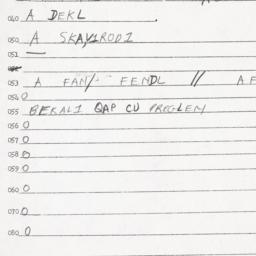 040 A DEKL
050 A SKAY1RODI
051 —
053 A FAN/- FENDL // A F
054 0
055 BERALI QAP CU PREGLEM
056 0
057 0
058 0
059 0
060 0
070 0
080 0